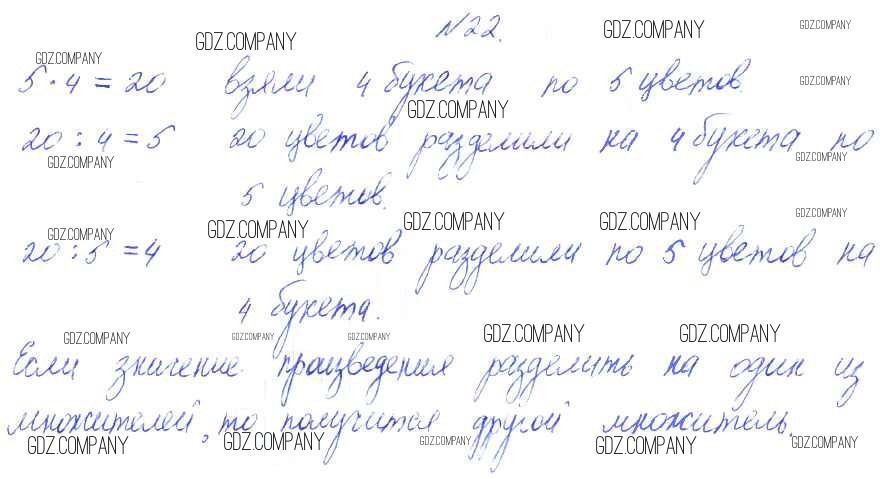 N22.
GDZ.COMPANY GDZ.COMPANY GDZ.COMPANY
GDZ.COMPANY
5 · 4 = 20 взяли 4 букета по 5 цветов.
GDZ.COMPANY
GDZ.COMPANY
20 : 4 = 5 20 цветов разделили на 4 букета по
GDZ.COMPANY GDZ.COMPANY
5 цветов.
GDZ.COMPANY GDZ.COMPANY GDZ.COMPANY GDZ.COMPANY GDZ.COMPANY
20 : 5 = 4 20 цветов разделили по 5 цветов на
4 букета.
GDZ.COMPANY GDZ.COMPANY GDZ.COMPANY GDZ.COMPANY GDZ.COMPANY
Если значение произведения разделить на один из
множителей, то получится другой множитель.
GDZ.COMPANY GDZ.COMPANY GDZ.COMPANY GDZ.COMPANY GDZ.COMPANY